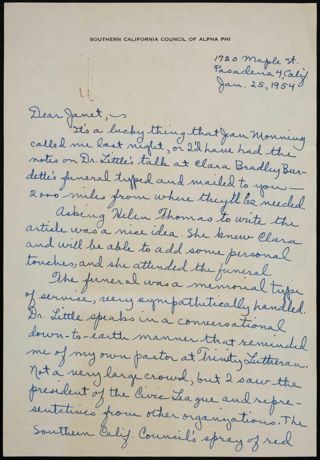 SOUTHERN CALIFORNIA COUNCIL OF ALPHA PHI
1720 Maple St.
Pasadena 4, Calif
Jan. 25, 1954
Dear Janet,
It's a lucky thing that Jean Monning
called me last night, or I'd have had the
notes on Dr. Little's talk at Clara Bradley Bur-
dette's funeral typed and mailed to you —
2000 miles from where they'll be needed
Asking Helen Thomas to write the
article was a nice idea. She knew Clara
and will be able to add some personal
touches, and she attended the funeral.
The funeral was a memorial type
of service, very sympathetically handled.
Dr. Little speaks in a conversational
down-to-earth manner that reminded
me of my own pastor at Trinity Lutheran.
Not a very large crowd, but I saw the
president of the Civic League and repre-
sentatives from other organizations. The
Southern Calif. Council's spray of red